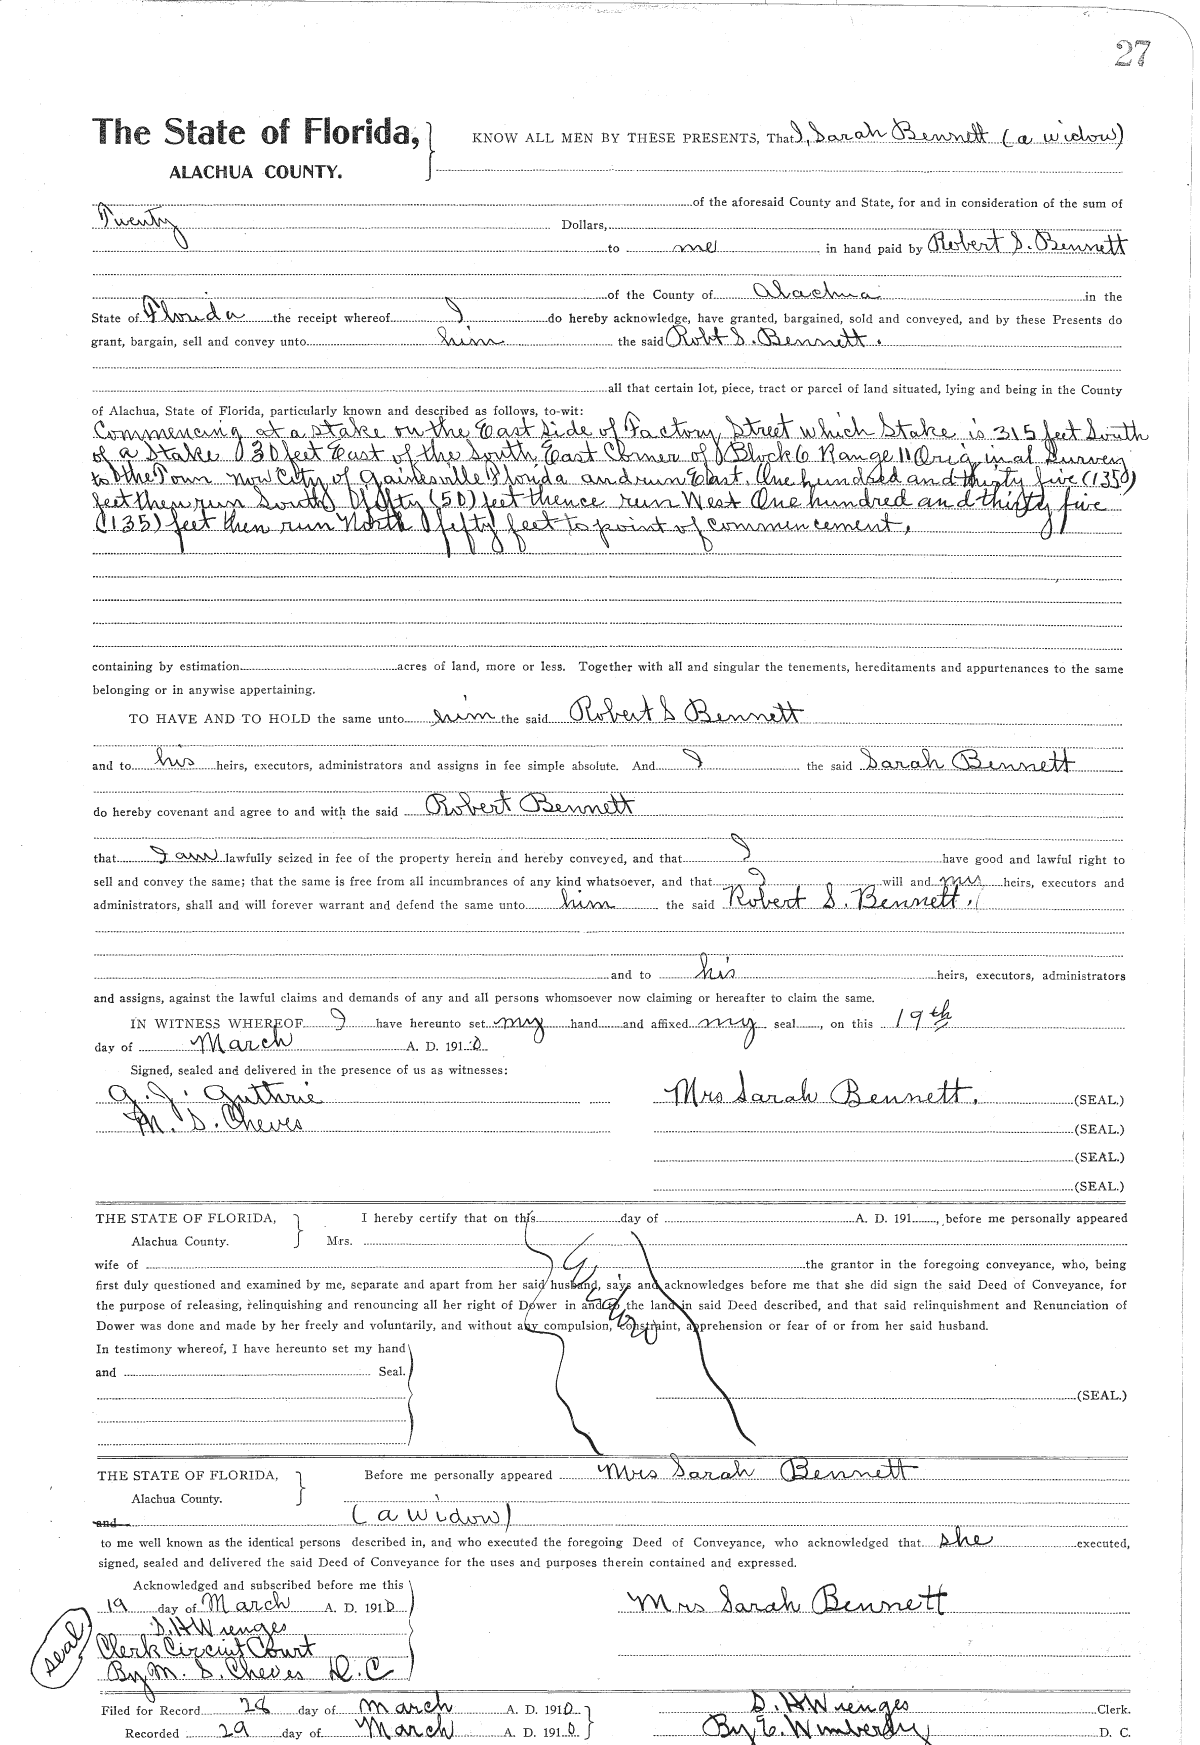 27
The State of Florida, KNOW ALL MEN BY THESE PRESENTS, That I, Sarah Bennett (a widow)
ALACHUA COUNTY.
of the aforesaid County and State, for and in consideration of the sum of
Twenty Dollars,
to me in hand paid by Robert S. Bennett
of the County of Alachua in the
State of Florida the receipt whereof I do hereby acknowledge, have granted, bargained, sold and conveyed, and by these Presents do
grant, bargain, sell and convey unto him the said Robt S. Bennett.
all that certain lot, piece, tract or parcel of land situated, lying and being in the County
of Alachua, State of Florida, particularly known and described as follows, to-wit:
Commencing at a stake on the East Side of Factory Street which Stake is 315 feet South
of a Stake 30 feet East of the South East Corner of Block 6 Range 11 Original Survey
to the Town now City of Gainesville Florida and run East. One hundred and thirty five (135)
feet then run South fifty (50) feet thence run West One hundred and thirty five
(135) feet then run North fifty feet to point of commencement.
containing by estimation acres of land, more or less. Together with all and singular the tenements, hereditaments and appurtenances to the same
belonging or in anywise appertaining.
TO HAVE AND TO HOLD the same unto him the said Robert S Bennett
and to his heirs, executors, administrators and assigns in fee simple absolute. And I the said Sarah Bennett
do hereby covenant and agree to and with the said Robert Bennett
that I am lawfully seized in fee of the property herein and hereby conveyed, and that I have good and lawful right to
sell and convey the same; that the same is free from all incumbrances of any kind whatsoever, and that I will and my heirs, executors and
administrators, shall and will forever warrant and defend the same unto him the said Robert S. Bennett.
and to his heirs, executors, administrators
and assigns, against the lawful claims and demands of any and all persons whomsoever now claiming or hereafter to claim the same.
IN WITNESS WHEREOF I have hereunto set my hand and affixed my seal, on this 19th
day of March A. D. 1910
Signed, sealed and delivered in the presence of us as witnesses:
G. J. Guthrie Mrs Sarah Bennett. (SEAL.)
M. S. Cheves (SEAL.)
(SEAL.)
(SEAL.)
THE STATE OF FLORIDA, I hereby certify that on this day of A. D. 191 , before me personally appeared
Alachua County. Mrs.
wife of the grantor in the foregoing conveyance, who, being
first duly questioned and examined by me, separate and apart from her said husband, says and acknowledges before me that she did sign the said Deed of Conveyance, for
the purpose of releasing, relinquishing and renouncing all her right of Dower in and to the land in said Deed described, and that said relinquishment and Renunciation of
Dower was done and made by her freely and voluntarily, and without any compulsion, constraint, apprehension or fear of or from her said husband.
Widow
In testimony whereof, I have hereunto set my hand
and Seal.
(SEAL.)
THE STATE OF FLORIDA, Before me personally appeared Mrs Sarah Bennett
Alachua County.
and (a widow)
to me well known as the identical persons described in, and who executed the foregoing Deed of Conveyance, who acknowledged that she executed,
signed, sealed and delivered the said Deed of Conveyance for the uses and purposes therein contained and expressed.
Acknowledged and subscribed before me this
19 day of March A. D. 1910 Mrs Sarah Bennett
S. H Wienges
Clerk Circuit Court
seal By M. S. Cheves D. C
Filed for Record 28 day of March A. D. 1910 S. H Wienges Clerk.
Recorded 29 day of March A. D. 1910 By E. Wimberly D. C.